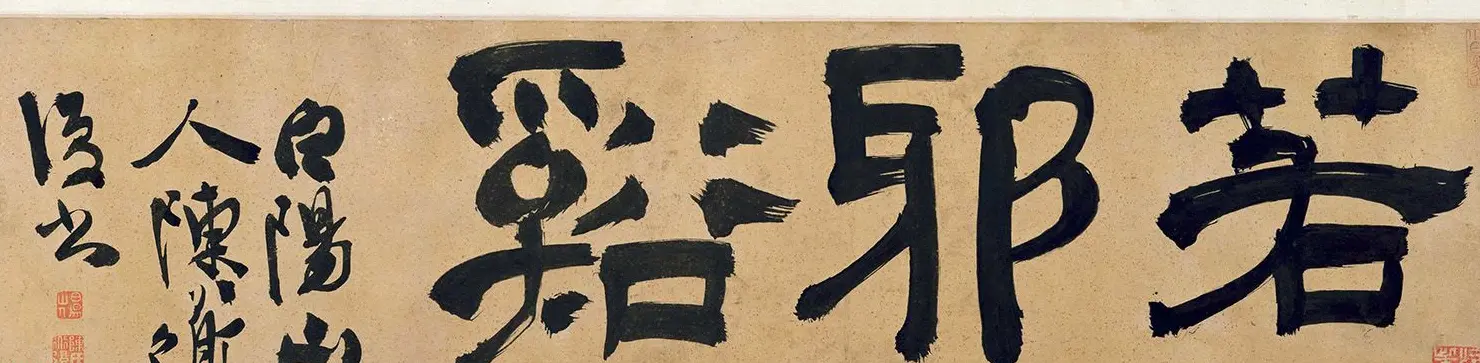 若耶谿
白陽山
人陳道
復書